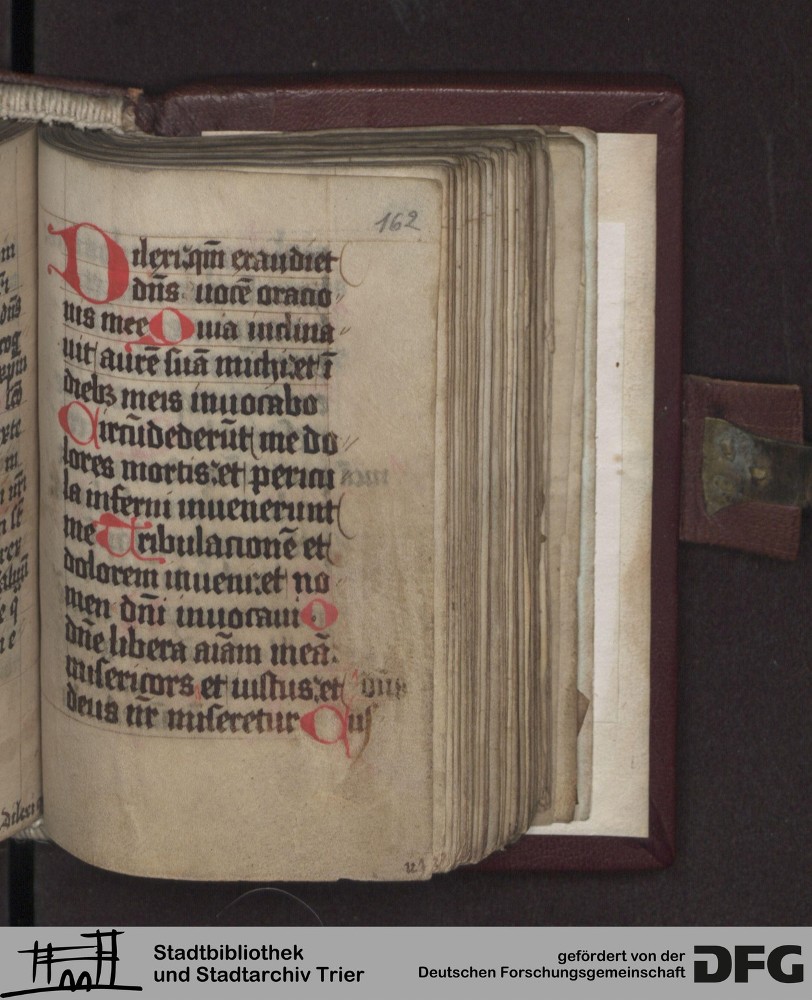 162
Dilexi: qm̄ exaudiet
dn̄s uocē oracio
nis mee Quia inclina
uit aurē suā michi: et ī
diebꝫ meis inuocabo
Circūdederūt me do
lores mortis: et pericu
la inferni inuenerunt
me Tribulacionē et
dolorem inueni: et no
men dn̄i inuocaui O
dn̄e libera aīam meā:
misericors et iustus: et dn̄s
deus nr̄ miseretur Cus
Stadtbibliothek
und Stadtarchiv Trier
gefördert von der
Deutschen Forschungsgemeinschaft
DFG